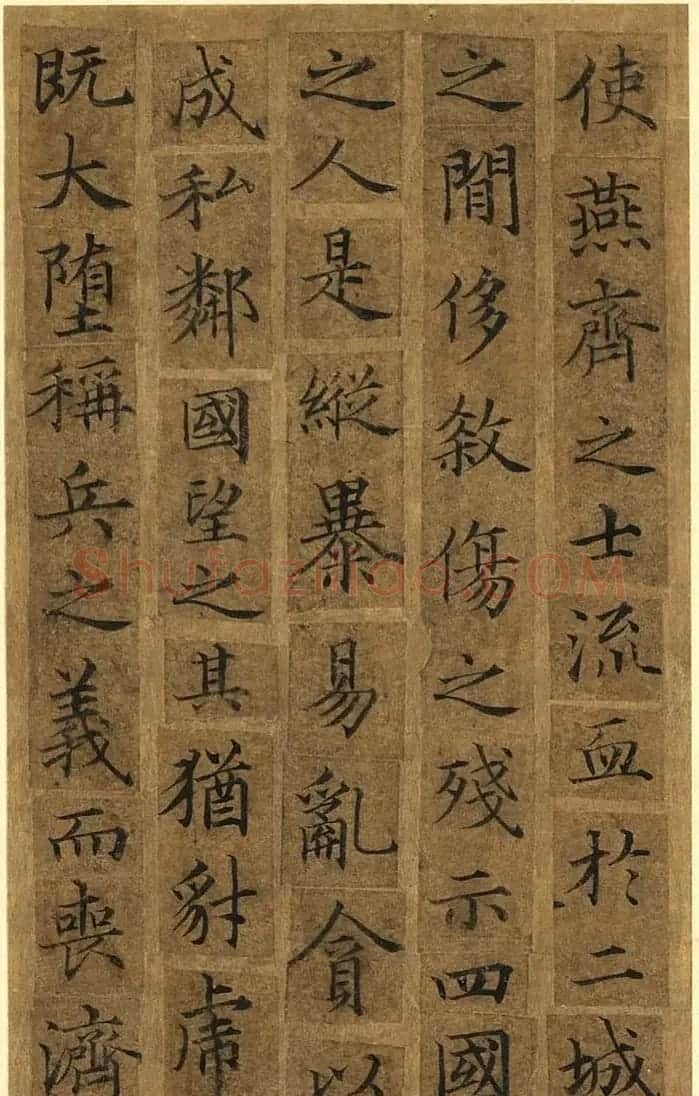 使燕齊之士流血於二城
之閒侈殺傷之殘示四國
之人是縱暴易亂貪以
成私鄰國望之其猶豺虎
既大堕稱兵之義而喪濟